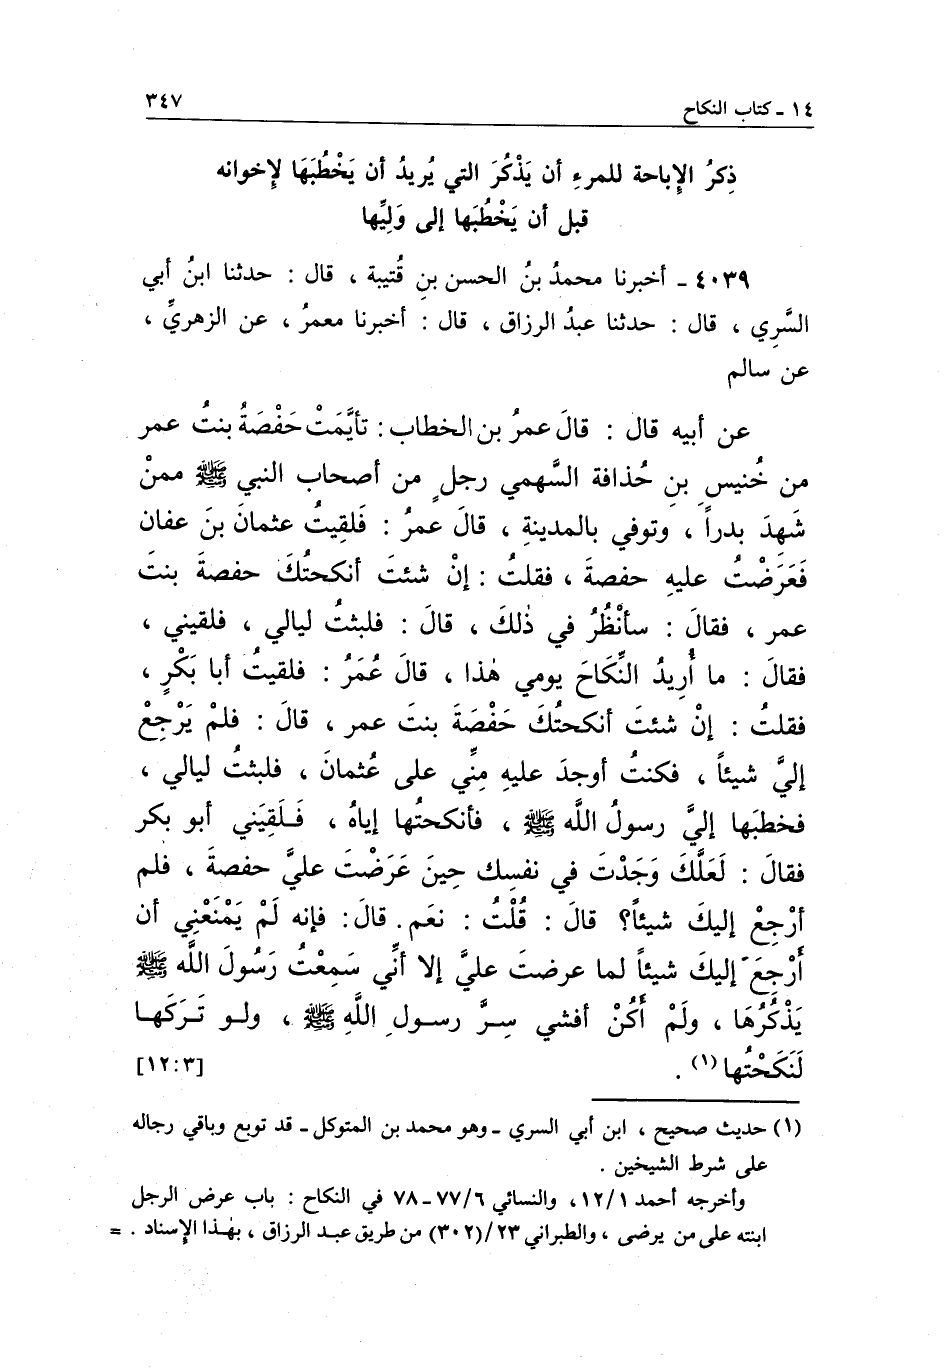 ١٤ - كتاب النكاح
٣٤٧
ذِكرُ الإباحة للمرءِ أن يَذْكُرَ التي يُريدُ أن يَخْطُبَهَا لإخوانه
قبل أن يَخْطُبَها إلى وَلِيِّها
٤٠٣٩ - أخبرنا محمدُ بنُ الحسن بنِ قُتيبة ، قال : حدثنا ابنُ أبي
السَّرِي ، قال : حدثنا عبدُ الرزاق ، قال : أخبرنا معمرُ ، عن الزهريِّ ،
عن سالم
عن أبيه قال : قالَ عمرُ بن الخطاب : تأيَّمَتْ حَفْصَةُ بنتُ عمر
من خُنيسِ بنِ حُذافة السَّهمي رجلٍ من أصحاب النبي ﷺ ممنْ
شَهِدَ بدراً ، وتوفي بالمدينةِ ، قالَ عمرُ : فَلقيتُ عثمانَ بنَ عفان
فَعَرَضْتُ عليهِ حفصةَ ، فقلتُ : إنْ شئتَ أنكحتُكَ حفصةَ بنتَ
عمر ، فقالَ : سأنْظُرُ في ذٰلكَ ، قالَ : فلبثتُ ليالي ، فلقيني ،
فقالَ : ما أُرِيدُ النِّكَاحَ يومي هٰذا ، قالَ عُمَرُ : فلقيتُ أبا بَكْرٍ ،
فقلتُ : إنْ شئتَ أنكحتُكَ حَفْصَةَ بنتَ عمر ، قالَ : فلمْ يَرْجِعْ
إليَّ شيئاً ، فكنتُ أوجدَ عليهِ مِنِّي على عُثمانَ ، فلبثتُ ليالي ،
فخطبَها إليَّ رسولُ اللَّه ﷺ ، فأنكحتُها إياهُ ، فَلَقِيَني أبو بكر
فقالَ : لَعَلَّكَ وَجَدْتَ في نفسِك حِينَ عَرَضْتَ عليَّ حفصةَ ، فلم
أرْجِعْ إليكَ شيئاً؟ قالَ : قُلْتُ : نعَم. قالَ: فإنه لَمْ يَمْنَعْنِي أن
أَرْجِعَ إليكَ شيئاً لما عرضتَ عليَّ إلا أنِّي سَمِعْتُ رَسُولَ اللَّه ﷺ
يَذْكُرُهَا ، ولَمْ أَكُنْ أفشي سِرَّ رسولِ اللَّهِ ﷺ ، ولو تَرَكَها
لَنَكَحْتُها (١) . [٣:١٢]
(١) حديث صحيح ، ابن أبي السري - وهو محمد بن المتوكل - قد توبع وباقي رجاله
على شرط الشيخين .
وأخرجه أحمد ١٢/١، والنسائي ٧٧/٦ - ٧٨ في النكاح : باب عرض الرجل
ابنته على من يرضى ، والطبراني ٢٣/(٣٠٢) من طريق عبد الرزاق ، بهٰذا الإسناد . =